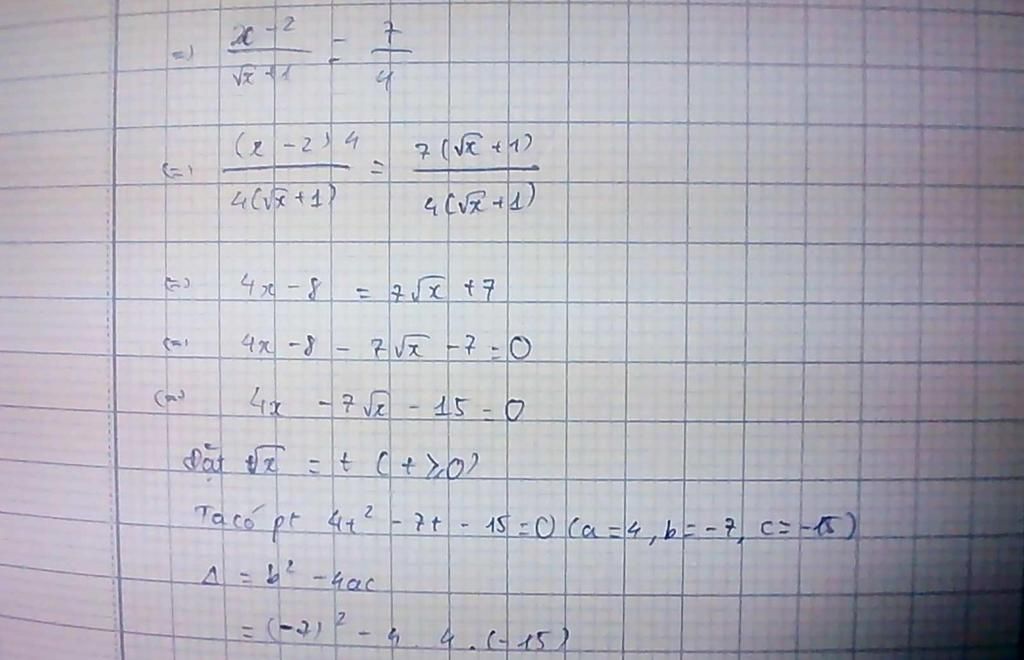 =) (x - 2)/(√x + 1) = 7/4
(=) (x - 2) 4/4(√x + 1) = 7(√x + 1)/4(√x + 1)
(=) 4x - 8 = 7√x + 7
(=) 4x - 8 - 7√x - 7 = 0
(=) 4x - 7√x - 15 = 0
Đặt √x = t (t ≥ 0)
Ta có pt 4t² - 7t - 15 = 0 (a = 4, b = -7, c = -15)
Δ = b² - 4ac
= (-7)² - 4 . 4 . (-15)